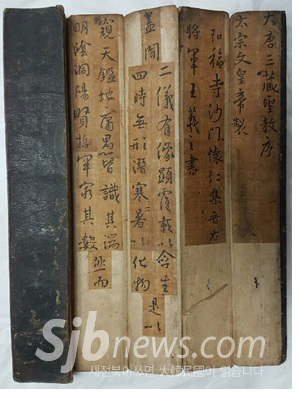 大唐三藏聖教序
太宗文皇帝製
弘福寺沙門懷仁集晉右
將軍王羲之書
蓋聞
二儀有像顯覆載以含生
四時無形潛寒暑以化物
是以
窺天鑑地庸愚皆識其端
明陰洞陽賢哲罕窮其數
然而
Sjbnews.com
새전북이쓰면 大韓民國이 읽습니다